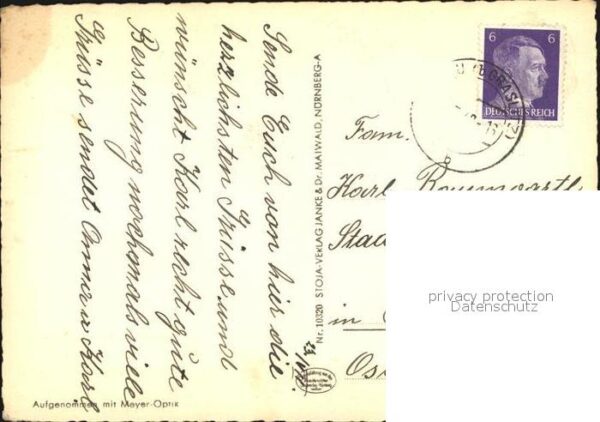 Sende Euch von hier die
herzlichsten Grüsse und
wünscht Karl recht gute
Besserung nochmals viele
Grüsse sendet Anna u Karl
Aufgenommen mit Meyer-Optik
Nr. 10320 STOJA-VERLAG JANKE & Dr. MAIWALD, NÜRNBERG-A
6 6
DEUTSCHES REICH
Fam.
Karl Baumgartl
Stad
in
Os
privacy protection
Datenschutz